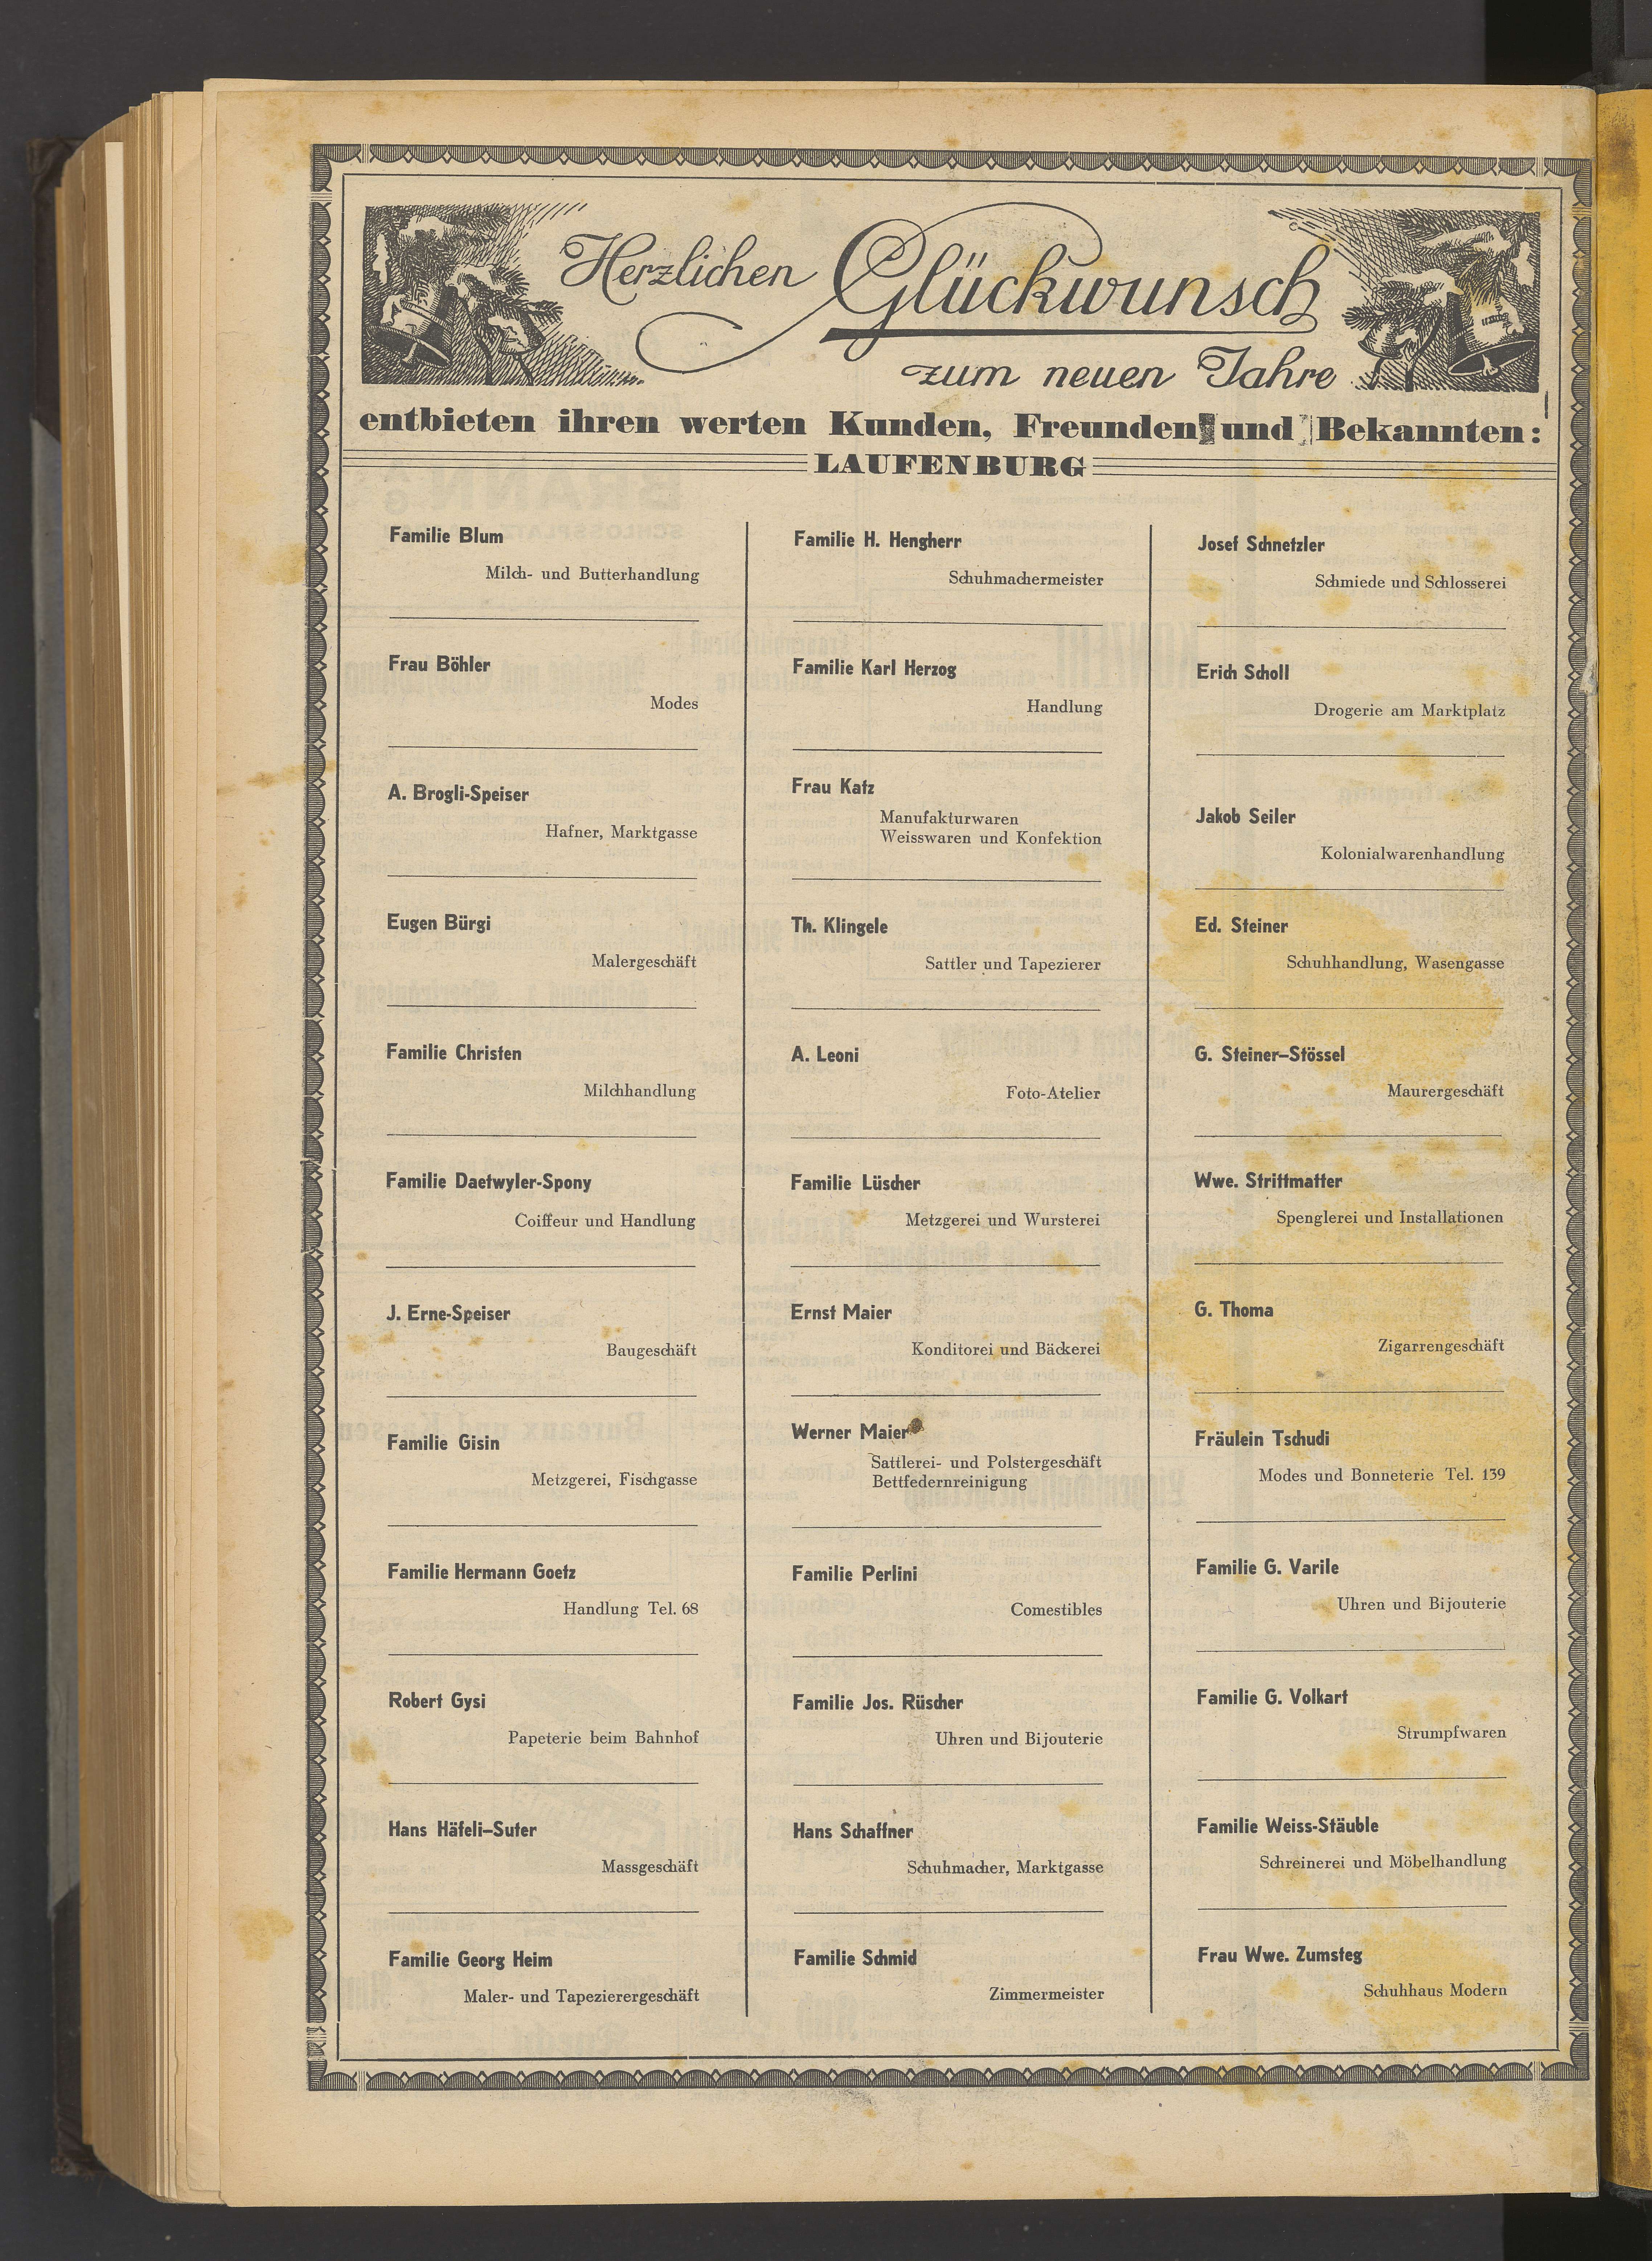 Herzlichen Glückwunsch
zum neuen Jahre
entbieten ihren werten Kunden, Freunden und Bekannten:
LAUFENBURG
Familie Blum
Milch- und Butterhandlung
Frau Böhler
Modes
A. Brogli-Speiser
Hafner, Marktgasse
Eugen Bürgi
Malergeschäft
Familie Christen
Milchhandlung
Familie Daetwyler-Spony
Coiffeur und Handlung
J. Erne-Speiser
Baugeschäft
Familie Gisin
Metzgerei, Fischgasse
Familie Hermann Goetz
Handlung Tel. 68
Robert Gysi
Papeterie beim Bahnhof
Hans Häfeli-Suter
Massgeschäft
Familie Georg Heim
Maler- und Tapezierergeschäft
Familie H. Hengherr
Schuhmachermeister
Familie Karl Herzog
Handlung
Frau Katz
Manufakturwaren
Weisswaren und Konfektion
Th. Klingele
Sattler und Tapezierer
A. Leoni
Foto-Atelier
Familie Lüscher
Metzgerei und Wursterei
Ernst Maier
Konditorei und Bäckerei
Werner Maier
Sattlerei- und Polstergeschäft
Bettfedernreinigung
Familie Perlini
Comestibles
Familie Jos. Rüscher
Uhren und Bijouterie
Hans Schaffner
Schuhmacher, Marktgasse
Familie Schmid
Zimmermeister
Josef Schnetzler
Schmiede und Schlosserei
Erich Scholl
Drogerie am Marktplatz
Jakob Seiler
Kolonialwarenhandlung
Ed. Steiner
Schuhhandlung, Wasengasse
G. Steiner-Stössel
Maurergeschäft
Wwe. Strittmatter
Spenglerei und Installationen
G. Thoma
Zigarrengeschäft
Fräulein Tschudi
Modes und Bonneterie Tel. 139
Familie G. Varile
Uhren und Bijouterie
Familie G. Volkart
Strumpfwaren
Familie Weiss-Stäuble
Schreinerei und Möbelhandlung
Frau Wwe. Zumsteg
Schuhhaus Modern